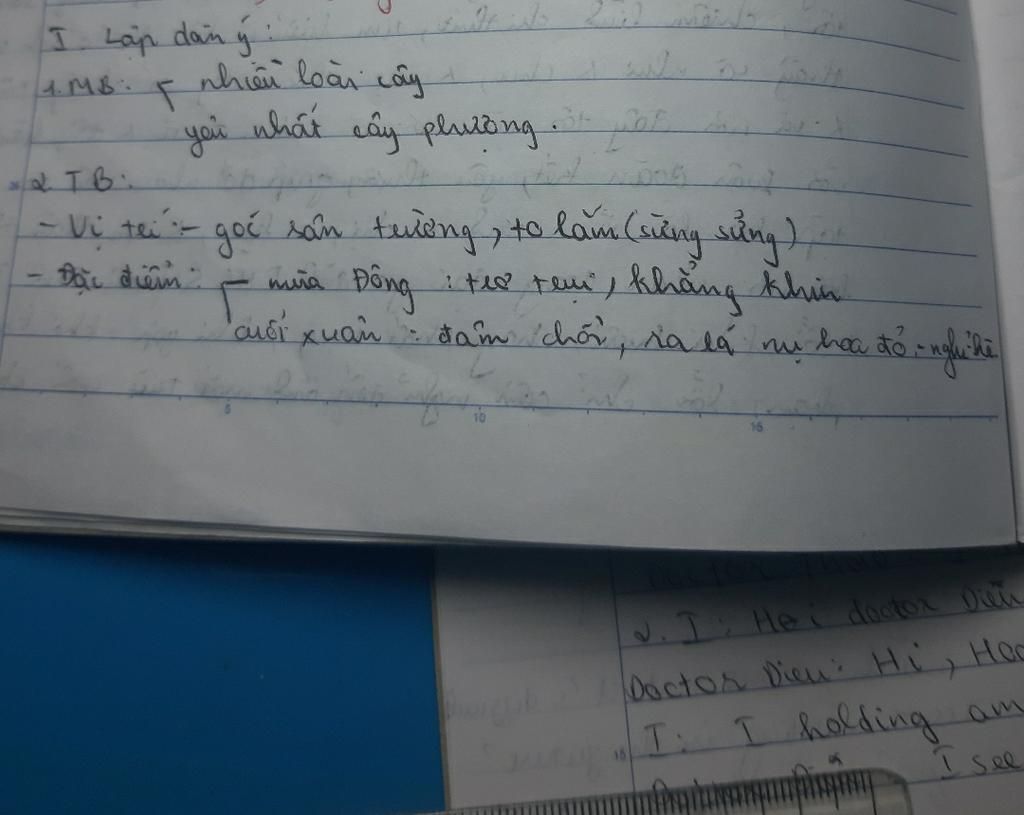 I. Lập dàn ý:
1. MB: nhiều loài cây
yêu nhất cây phượng.
2 TB:
- Vị trí :- góc sân trường, to lắm (sừng sửng)
- Đặc điểm: - mùa Đông : trơ trụi, khẳng khiu
cuối xuân : đâm chồi, ra lá nụ hoa đỏ -nghỉ hè
5 10 15
2. I: Hei doctor Diễu
Doctor Dieu: Hi, Hoc
I: I holding am
I see